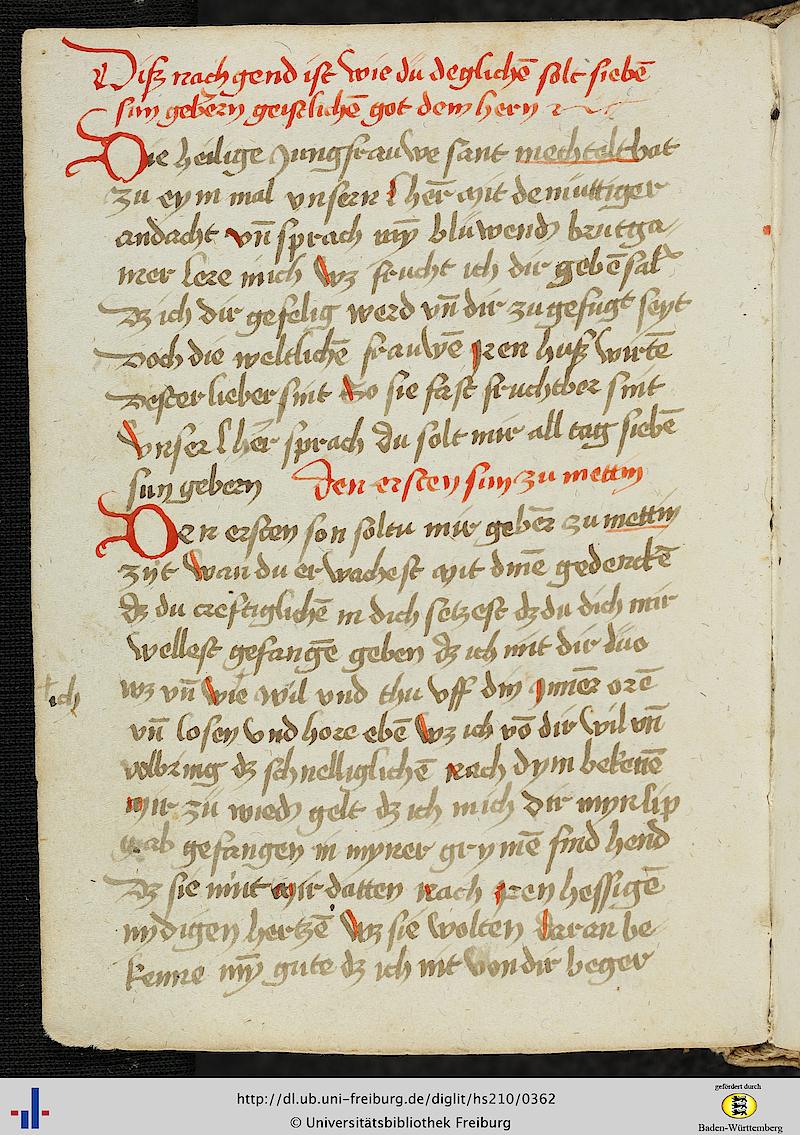 Diß nach gend ist wie du deglichē solt siebē
sun gebern geistlichē got dem hern
Die heilige Jungfrauwe sant mechtelt bat
zu eym mal vnsern l herr̄ mit demuttiger
andacht vn̄ sprach my̅ bluwend brutga-
mer lere mich wz frucht ich dir gebē sal
Dz ich dir gefelig werd vn̄ dir zu gefugt seyt
Doch die weltlichē frauwē jren huß wirtē
Dester lieber sint So sie fast fruchtber sint
Vnser l her̄ sprach Du solt mir all tag siebē
sun gebern den ersten sun zu mettin
Den ersten son soltu mir geber̄ zu mettin
zijt wan du erwachest mit dinē gedenckē
dz du creftiglichē in dich setzest dz du dich mir
wellest gefangē geben dz ich mit dir düo
ich
wz vn̄ wie wil vnd thu vff din Jnner̄ orē
vn̄ losen vnd hore ebē wz ich vō dir wil vn̄
volbring dz schnelliglichē nach dym bekenē
mir zü wieder gelt dz ich mich dir myn lip
gab gefangen in myner grymē find hend
Dz sie mit mir datten nach jren hessigē
nydigen hertzē wz sie wolten daran be-
kenne my̅ gute dz ich nit von dir beger
http://dl.ub.uni-freiburg.de/diglit/hs210/0362
© Universitätsbibliothek Freiburg
gefördert durch
Baden-Württemberg